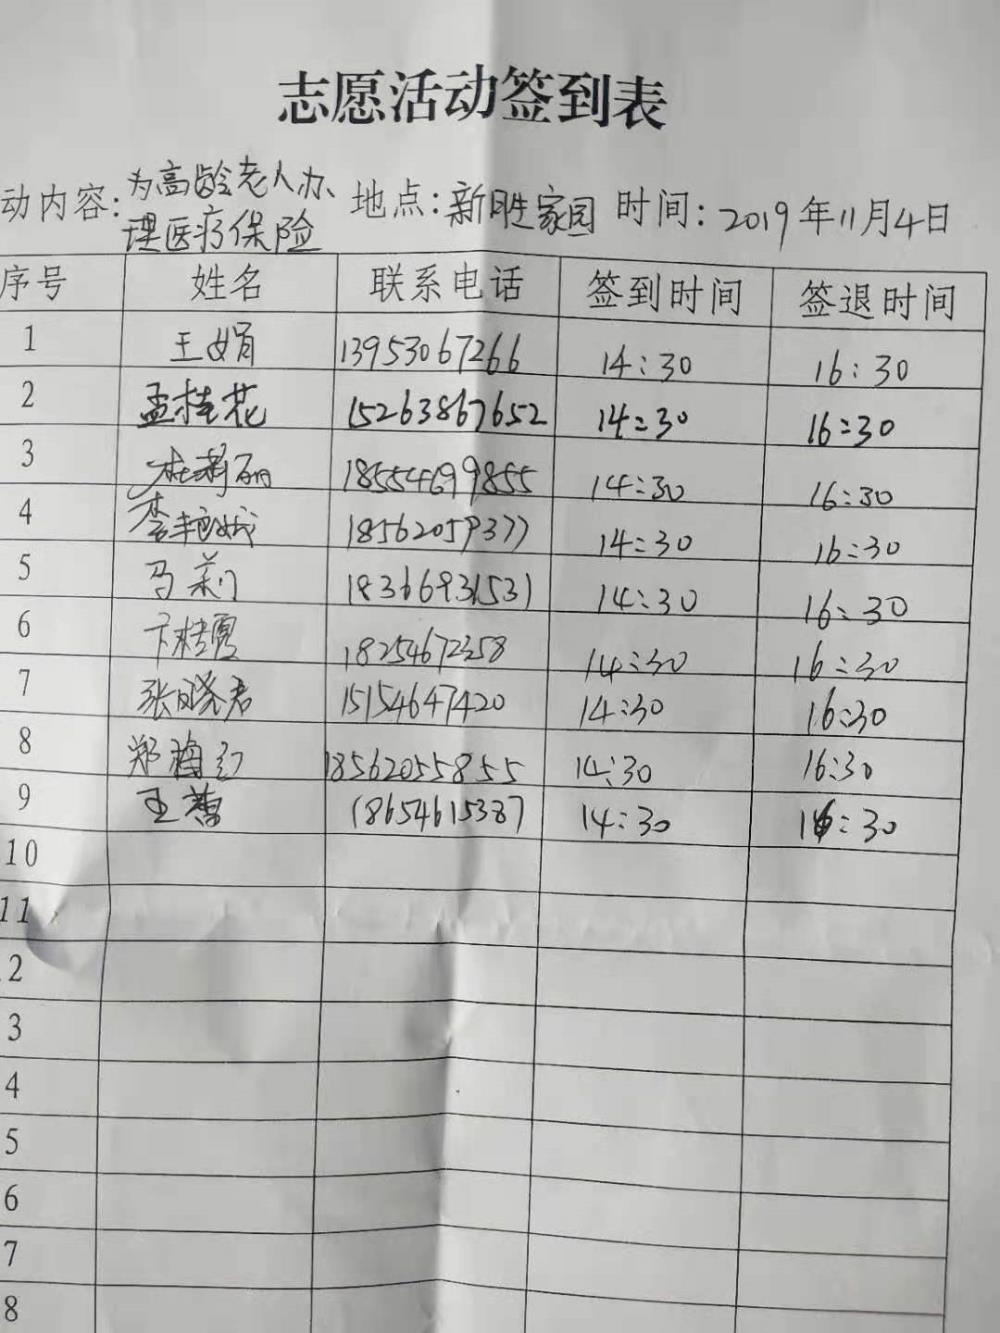 志愿活动签到表
动内容: 为高龄老人办 地点: 新胜家园 时间: 2019年11月4日
理医疗保险
序号 姓名 联系电话 签到时间 签退时间
1 王娟 13953067266 14:30 16:30
2 孟桂花 15263867652 14:30 16:30
3 杜莉丽 18554699855 14:30 16:30
4 李艳娥 18562059377 14:30 16:30
5 马莉 18366931531 14:30 16:30
6 卞桂霞 18254672358 14:30 16:30
7 张晓君 15154647420 14:30 16:30
8 郑梅红 18562055855 14:30 16:30
9 王 18654615387 14:30 16:30
10
11
2
3
4
5
6
7
8